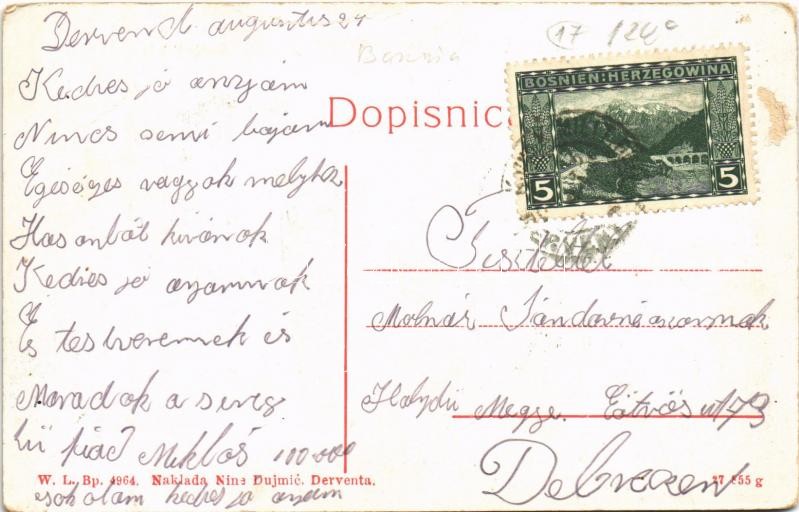 Dervend augusztus 24
17 /24 c
Bosznia
Kedves jó anyám
Nincs semi bajam
Dopisnica
Egéséges vagyok melyhez
Hasonbót kivánok
Kedves jó anyamnak
És testveremnek és
Maradok a szereg
hű fiad Miklós 100000
csokolam kedves jo anyam
BOSNIEN-HERZEGOWINA
5 5
Tisztelet
Molnár Sándorné asszonynak
Hajdú Megye. Eötvös u 73
Debrecen
W. L. Bp. 4964. Naklada Nine Dujmić, Derventa.
27 855 g